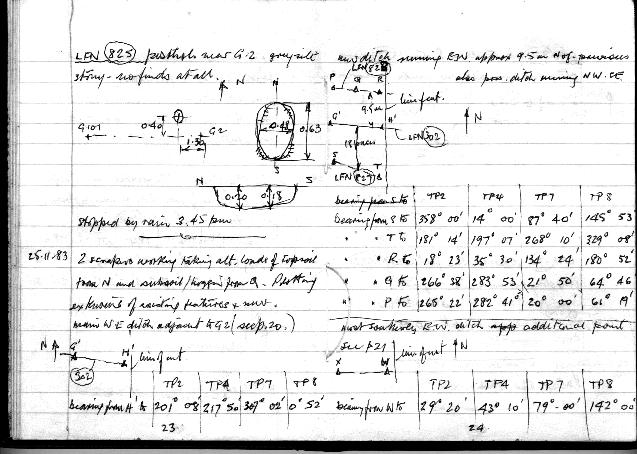 LFN 825 posthole near G-2 grey silt
stony - no finds at all.
N
N
G101
0.40
G2
1.30
0.48
0.63
S
N S
0.20 0.18
stopped by rain 3.45 pm
25.11.83 2 scrapers working taking alt. loads of topsoil
from N and subsoil/hoggin from Q. Plotting
extensions of existing features & new
main WE ditch adjacent to G2 (see p.20.)
N G' H' line of cut
302
TP2 TP4 TP7 TP8
bearing from H' to 201° 08' 217° 50' 309° 02' 0° 52'
23
new ditch running EW approx 9.5 m N of previous
also poss. ditch running NW. SE
LFN 828
P Q R
line feat.
9.5m
G' H'
N
LFN 302
18 paces
S T
LFN 827
TP2 TP4 TP7 TP8
bearing from S to 358° 00' 14° 00' 87° 40' 145° 53'
" " T to 181° 14' 197° 07' 268° 10' 329° 08'
" " R to 18° 23' 35° 30' 134° 24' 180° 52'
" " Q to 266° 38' 283° 53' 21° 50' 64° 46
" " P to 265° 22' 282° 41' 20° 00' 61° 19'
most southerly E.W. ditch additional point
see p21
X W line of cut N
TP2 TP4 TP7 TP8
bearing from W to 29° 20' 43° 10' 79°-00' 142° 00
24